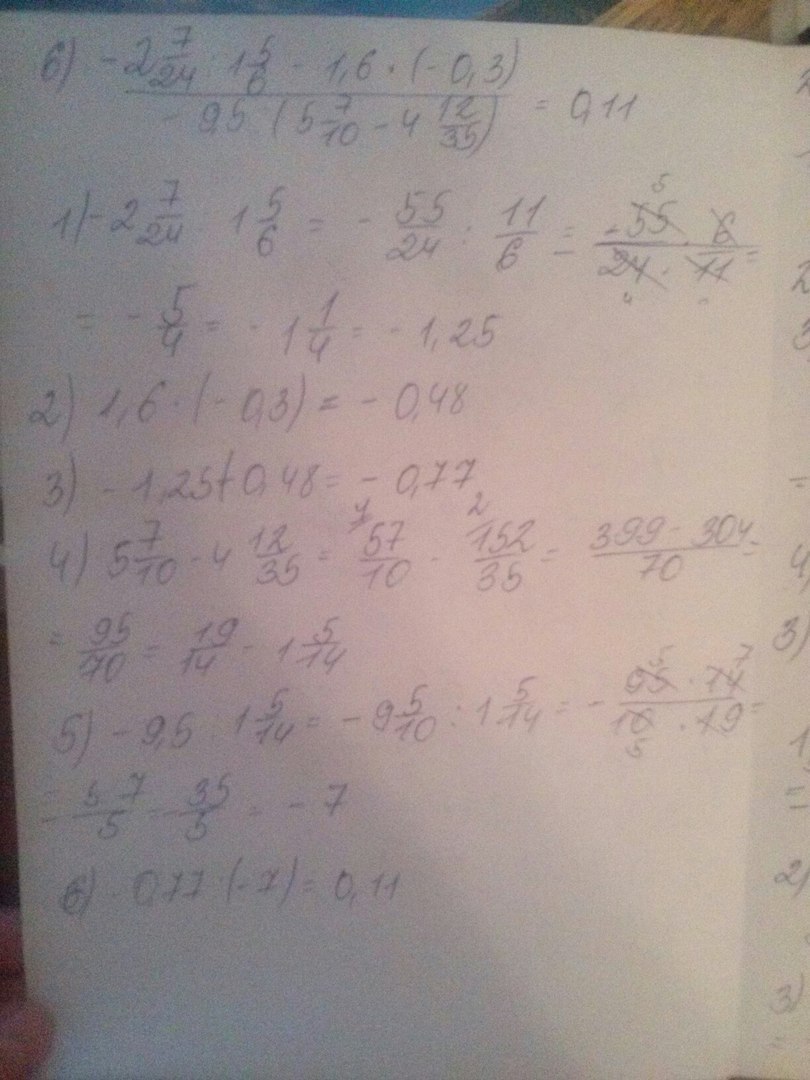 6) -2 7/24 : 1 5/6 - 1,6 · (-0,3)
- 9,5 : (5 7/10 - 4 12/35) = 0,11
1) -2 7/24 : 1 5/6 = - 55/24 : 11/6 = -55 · 6 / 24 · 11 =
= - 5/4 = - 1 1/4 = - 1,25
2) 1,6 · (-0,3) = - 0,48
3) - 1,25 + 0,48 = - 0,77
4) 5 7/10 - 4 12/35 = 57/10 - 152/35 = 399 - 304 / 70 =
= 95/70 = 19/14 = 1 5/14
5) - 9,5 : 1 5/14 = - 9 5/10 : 1 5/14 = - 95 · 14 / 10 · 19 =
= 5 · 7 / 5 = 35/5 = - 7
6) - 0,77 : (-7) = 0,11